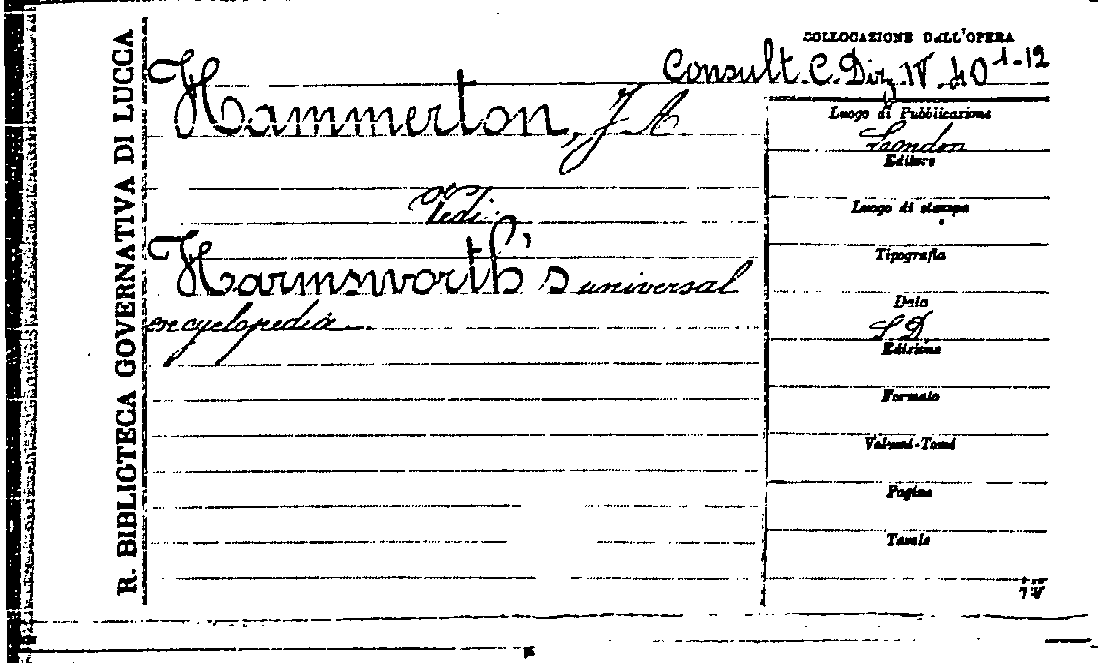 R. BIBLIOTECA GOVERNATIVA DI LUCCA
COLLOCAZIONE DALL'OPERA
Consult. C. Diz. IV. 40 1-12
Hammerton, J A
Vedi:
Harmsworth's universal
encyclopedia
Luogo di Pubblicazione
London
Editore
Luogo di stampa
Tipografia
Data
S. D.
Edizione
Formato
Volumi-Tomi
Pagine
Tavole